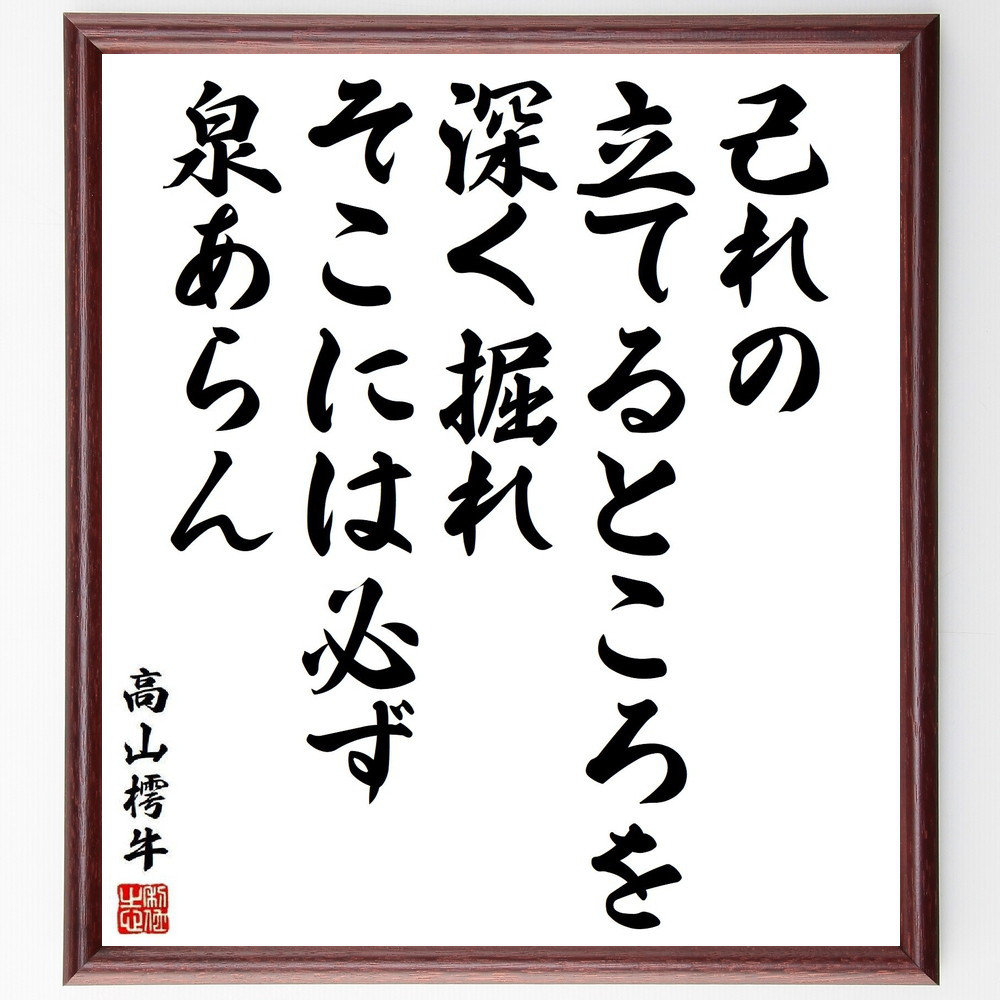 己れの
立てるところを
深く掘れ
そこには必ず
泉あらん
高山樗牛